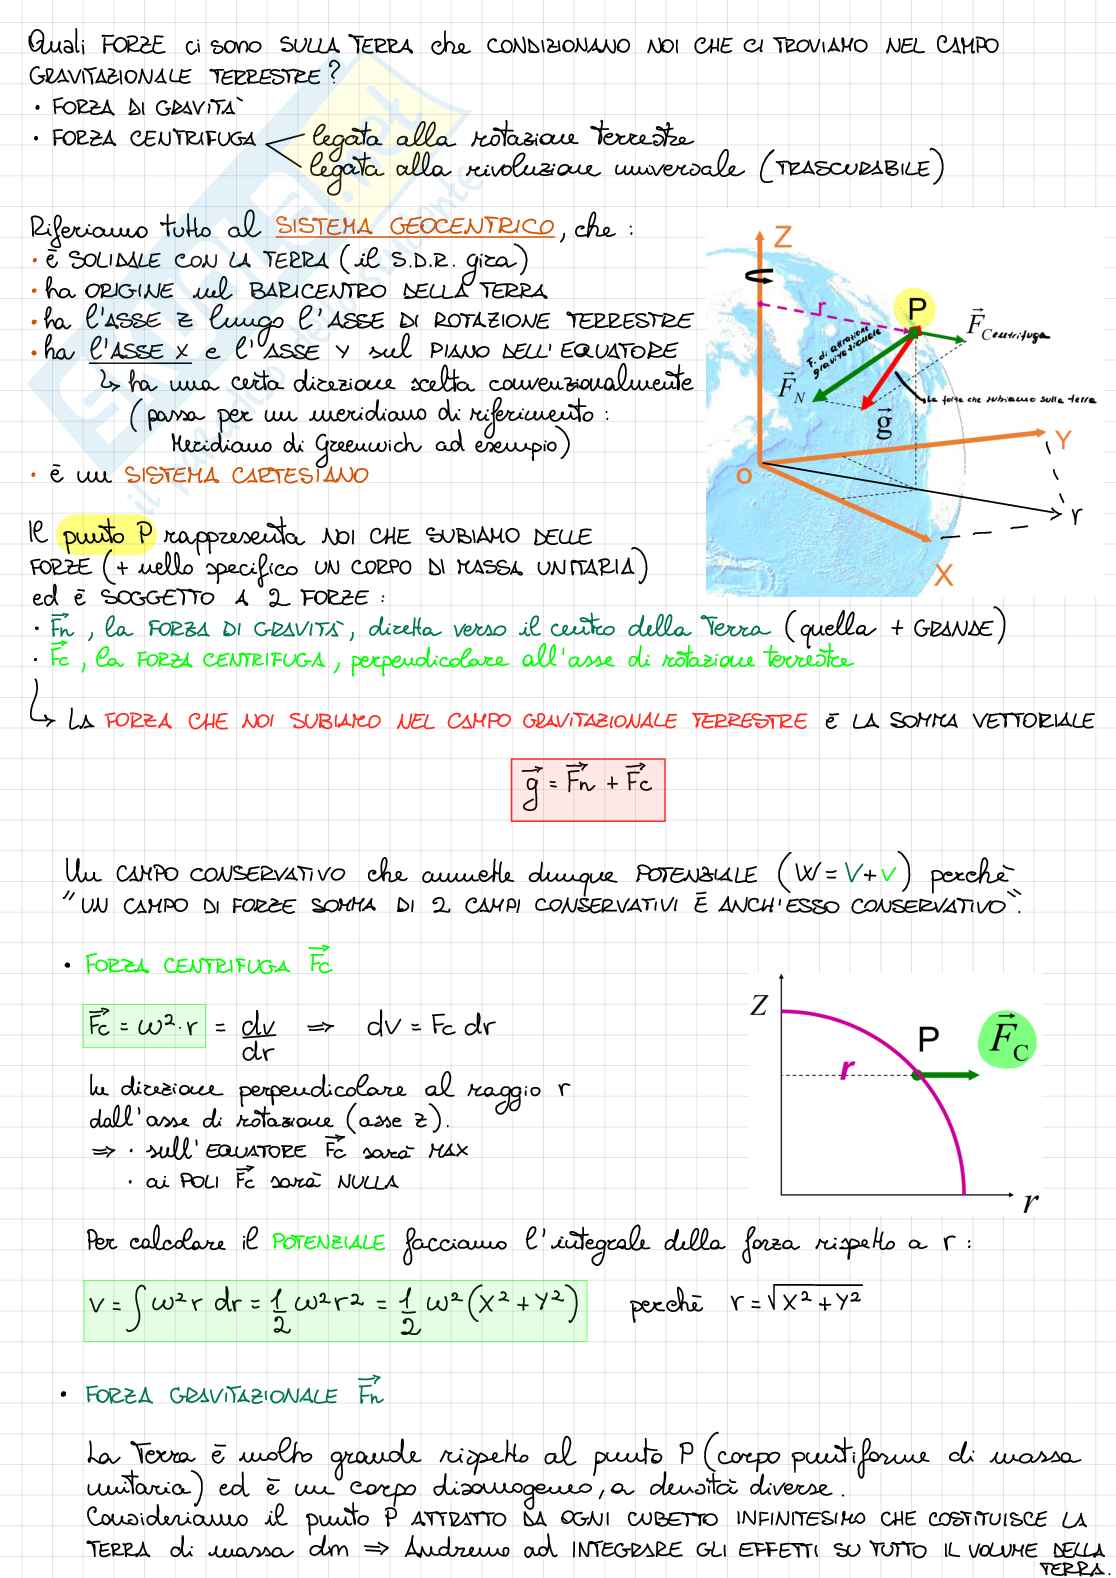 Quali FORZE ci sono SULLA TERRA che CONDIZIONANO NOI CHE CI TROVIAMO NEL CAMPO
GRAVITAZIONALE TERRESTRE?
• FORZA DI GRAVITÀ
• FORZA CENTRIFUGA
legata alla rotazione terrestre
legata alla rivoluzione universale (TRASCURABILE)
Riferiamo tutto al SISTEMA GEOCENTRICO, che:
• è SOLIDALE CON LA TERRA (il S.D.R. gira)
• ha ORIGINE nel BARICENTRO DELLA TERRA
• ha l'ASSE Z lungo l'ASSE DI ROTAZIONE TERRESTRE
• ha l'ASSE X e l'ASSE Y sul PIANO DELL'EQUATORE
↳ ha una certa direzione scelta convenzionalmente
(passa per un meridiano di riferimento:
Meridiano di Greenwich ad esempio)
• è un SISTEMA CARTESIANO
Z
r
P
F⃗Centrifuga
F. di attrazione
gravitazionale
F⃗N
La forza che subiamo sulla terra
g⃗
Y
O
r
X
Il punto P rappresenta NOI CHE SUBIAMO DELLE
FORZE (+ nello specifico UN CORPO DI MASSA UNITARIA)
ed è SOGGETTO A 2 FORZE:
• F⃗n, la FORZA DI GRAVITÀ, diretta verso il centro della Terra (quella + GRANDE)
• F⃗c, la FORZA CENTRIFUGA, perpendicolare all'asse di rotazione terrestre
↳ LA FORZA CHE NOI SUBIAMO NEL CAMPO GRAVITAZIONALE TERRESTRE È LA SOMMA VETTORIALE
g⃗ = F⃗n + F⃗c
Un CAMPO CONSERVATIVO che ammette dunque POTENZIALE (W = V + v) perchè
"UN CAMPO DI FORZE SOMMA DI 2 CAMPI CONSERVATIVI È ANCH'ESSO CONSERVATIVO".
• FORZA CENTRIFUGA F⃗c
F⃗c = ω²·r = dv/dr ⇒ dv = Fc dr
In direzione perpendicolare al raggio r
dall'asse di rotazione (asse z).
⇒ • sull'EQUATORE F⃗c sarà MAX
• ai POLI F⃗c sarà NULLA
Z
P
F⃗C
r
r
Per calcolare il POTENZIALE facciamo l'integrale della forza rispetto a r:
v = ∫ω²r dr = 1/2 ω²r² = 1/2 ω²(X²+Y²) perchè r = √X²+Y²
• FORZA GRAVITAZIONALE F⃗n
La Terra è molto grande rispetto al punto P (corpo puntiforme di massa
unitaria) ed è un corpo disomogeneo, a densità diverse.
Consideriamo il punto P ATTRATTO DA OGNI CUBETTO INFINITESIMO CHE COSTITUISCE LA
TERRA di massa dm ⇒ Andremo ad INTEGRARE GLI EFFETTI SU TUTTO IL VOLUME DELLA
TERRA.